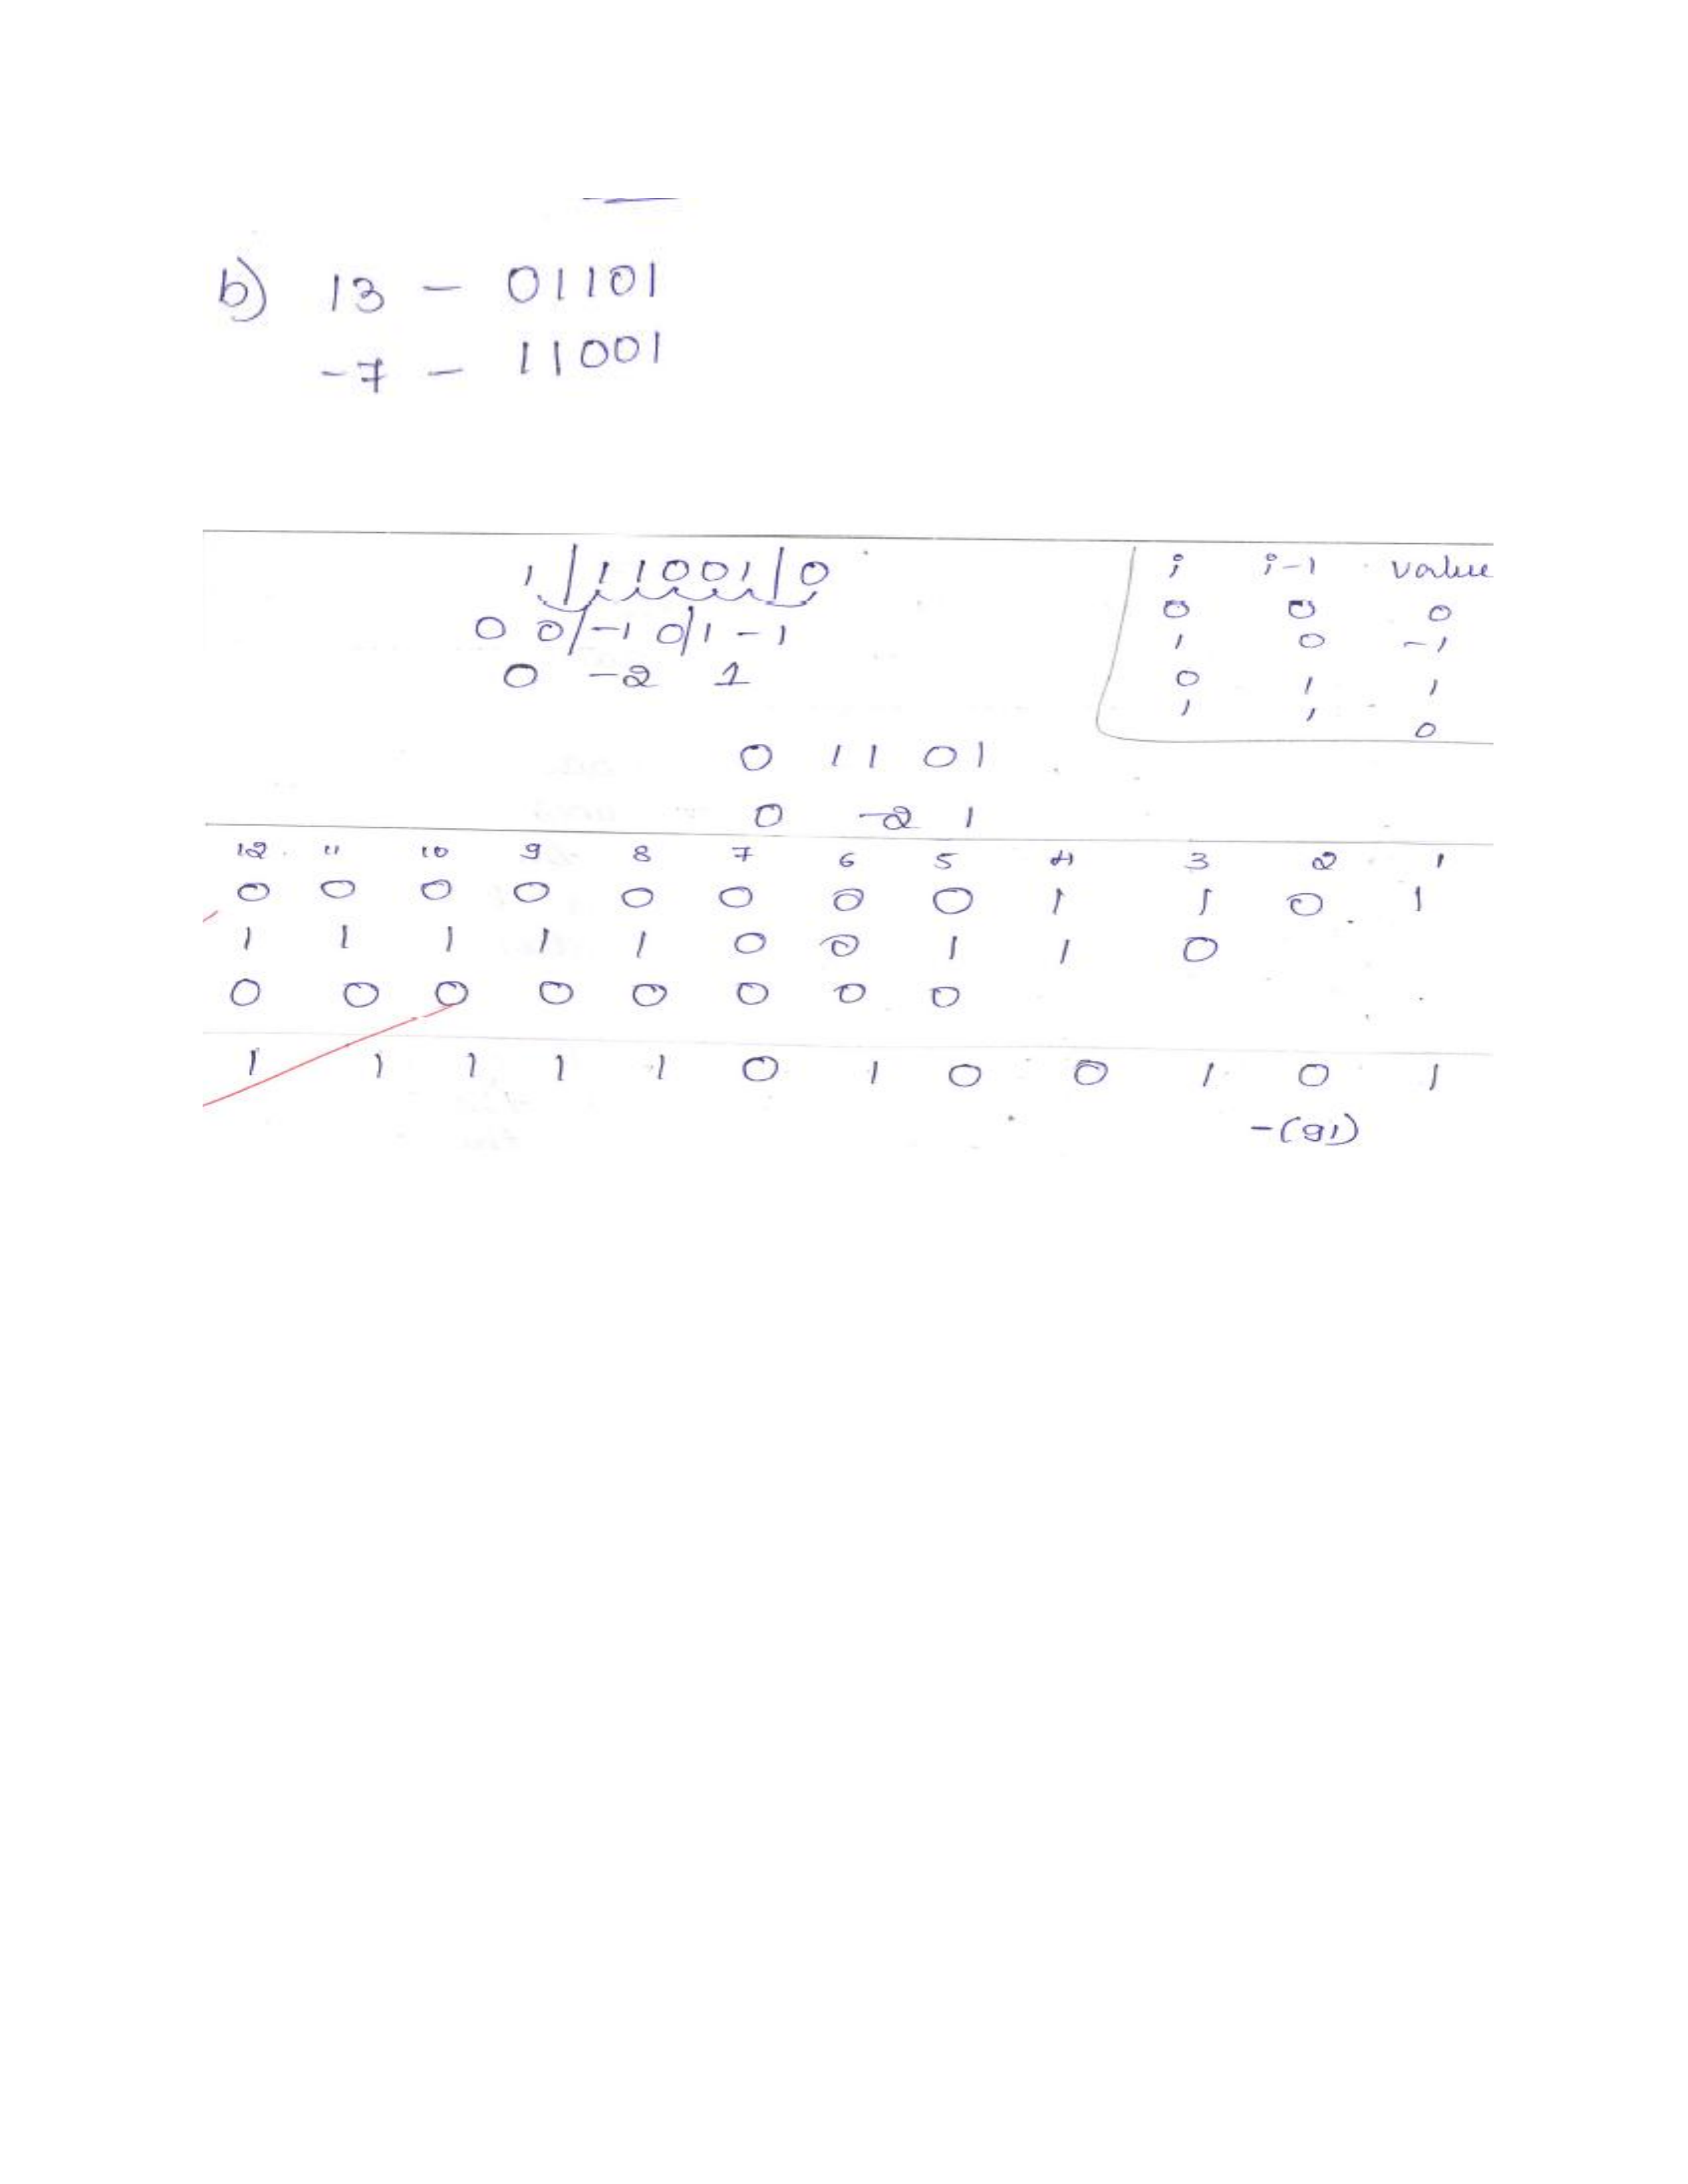 b) 13 - 01101
-7 - 11001
1/11001/0
0 0/-1 0/1 -1
0 -2 1
i i-1 value
0 0 0
1 0 -1
0 1 1
1 1 0
0 1 1 0 1
0 -2 1
12 11 10 9 8 7 6 5 4 3 2 1
0 0 0 0 0 0 0 0 1 1 0 1
1 1 1 1 1 0 0 1 1 0
0 0 0 0 0 0 0 0
1 1 1 1 1 0 1 0 0 1 0 1
-(91)